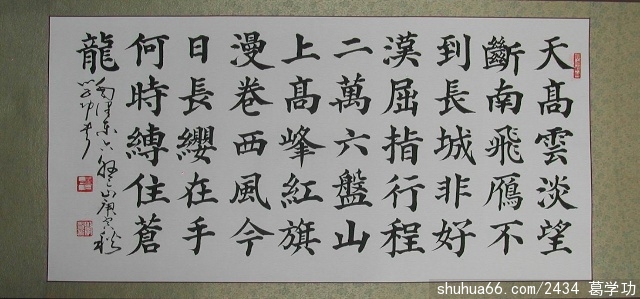 天髙雲淡望
斷南飛鴈不
到長城非好
漢屈指行程
二萬六盤山
上髙峰紅旗
漫卷西風今
日長纓在手
何時縛住蒼
龍
毛澤東六盤山庚寅秋
学功书
shuhua66.com/2434 葛学功